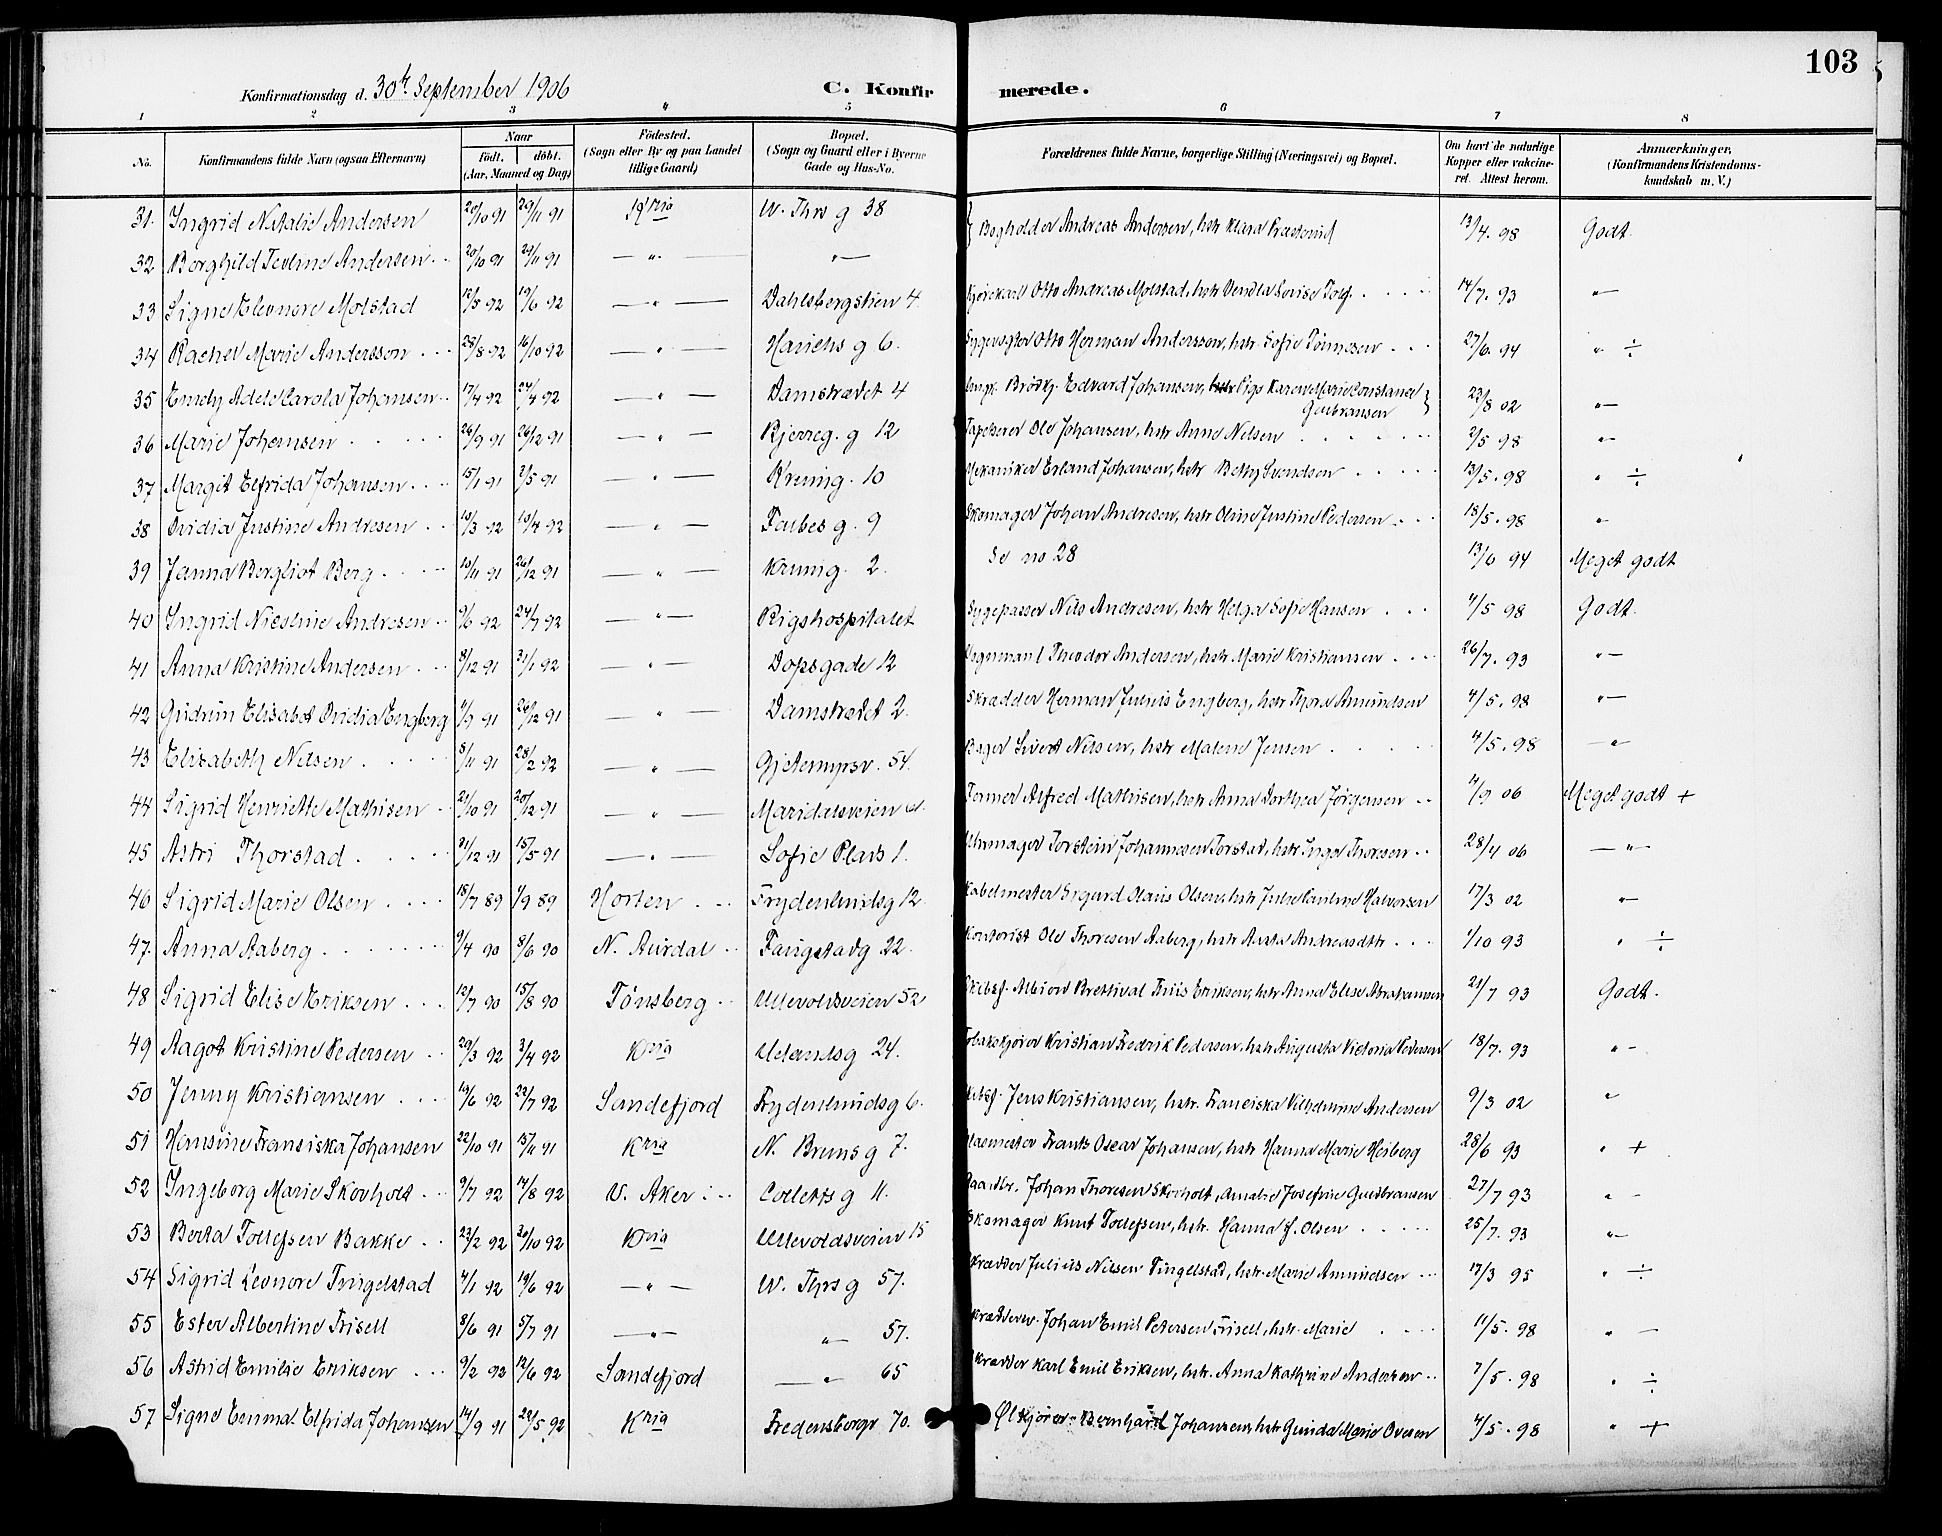 103
Konfirmationsdag d. 30te September 1906 C. Konfir merede.
1 2 3 4 5 6 7 8
No. Konfirmandens fulde Navn (ogsaa Efternavn) Naar født. døbt. (Aar, Maaned og Dag) Födested. (Sogn eller By og paa Landet tillige Gaard) Bopæl. (Sogn og Gaard eller i Byerne Gade og Hus-No. Forældrenes fulde Navne, borgerlige Stilling (Næringsvei) og Bopæl. Om havt de naturlige Kopper eller vakcineret. Attest herom. Anmærkninger, (Konfirmandens Kristendomskundskab m. V.)
31. Ingrid Natalie Andersen 20/10 91 29/11 91 Kria W. Thrs g 38 } Bogholder Andreas Andersen, hstr Klara Præsterud 13/4. 98 Godt.
32 Borghild Teoline Andersen 20/10 91 29/11 91 — " — " —
33 Signe Eleonore Molstad 12/5 92 19/6 92 — " — Dahlsbergstien 4 Kjørekarl Otto Andreas Molstad, hstr Vendla Lovise 14/7. 93 " —
34 Rachel Marie Andersson 28/8 92 16/10 92 — " — Hariehs g 6. Sygevogter Otto Herman Andersson, hstr. Sofie Tønnesen 27/6. 94 " ÷
35 Emely Adele Carola Johansen 17/4 92 24/4 92 — " — Damstrædet 4 Edvard Johansen, Pige Karen Marie Constance Gulbransen } 23/8 02 " —
36 Marie Johansen 26/9 91 26/12 91 — " — Bjerreg. g 12 Tapetserer Ole Johansen, hstr Anne Nilsen 2/5 98 " —
37 Margit Elfrida Johansen 15/1 91 3/5 91 — " — Krumg. 10 Mekaniker Erland Johansen, hstr Betty Svendsen 13/5. 98 " ÷
38 Ovidia Justine Andresen 10/3 92 10/4 92 — " — Falbes g. 9 Skomager Johan Andresen, hstr Oline Justine Pedersen 18/5. 98 " —
39 Janna Bergliot Berg 10/11 91 26/12 91 — " — Krumg. 2. Se no 28 13/6 94 Meget godt
40 Ingrid Nicoline Andresen 9/6 92 24/7 92 — " — Rigshospitalet Sygepasser Nils Andresen, hstr Helga Sofie Hansen 4/5 98 Godt.
41 Anna Kristine Andersen 8/12 91 31/1 92 — " — Dopsgade 12 Vognmand Theodor Andersen, hstr Marie Kristiansen 26/7. 93 " —
42 Gudrun Elisabet Ovidia Engberg 1/9 91 26/12 91 — " — Damstrædet 2. Skrædder Herman Julius Engberg, hstr Thora Amundsen 4/5. 98 " —
43 Elisabeth Nilsen 8/11 91 28/2 92 — " — Gjetempsv. 54. Bager Sivert Nilsen, hstr Malene Jensen 4/5. 98 — " —
44 Sigrid Henriette Mathisen 21/10 91 20/12 91 — " — Maridalsveien Former Alfred Mathisen, hstr Anna Dorthea Jørgensen 4/9 06 Meget godt +
45 Astri Thorstad 31/12 91 15/5 91 — " — Sofie Plads 1. Uhrmager Torstein Johannesen Torstad, hstr Inga Thoresen 28/4 06 — " —
46 Sigrid Marie Olsen 18/7 89 1/9 89 Horten Frydenlundsg 12. Kabelmester Sigurd Olaus Olsen, hstr Julie Pauline Halvorsen 17/3 02 " —
47. Anna Aaberg 9/4 90 8/6 90 N. Aurdal Faugstadg 22. Kontorist Ole Thoresen Aaberg, hstr Anna Andreasdtr. 1/10 93 " ÷
48 Sigrid Elise Eriksen 12/7 90 15/8 90 Tønsberg Ullevoldsveien 52 Skibsf. Albion Eriksen, hstr Anna Elise Abrahamsen 21/7 93 Godt.
49 Aagot Kristine Pedersen 20/3 92 3/4 92 Kria Uelandsg 24. Kristian Fredrik Pedersen, hstr Augusta Victoria Pedersen 18/7. 93 " —
50 Jenny Kristiansen 19/6 92 22/7 92 Sandefjord Frydenlundsg 6. Skibsf. Jens Kristiansen, hstr. Franciska Vilhelmine Andersen 9/3 02 "
51 Hansine Fransiska Johansen 22/10 91 15/11 91 Kria N. Bruns g 7. Frants Oscar Johansen, hstr Hanna Marie Heiberg 28/6 93 " +
52 Ingeborg Marie Skovholt 9/7 92 14/8 92 V. Aker Colletts g 11. Johan Thoresen Skovholt, Amalie Josefine Guldbransen 27/7 93 " —
53 Berta Tollefsen Bakke 23/2 92 30/10 92 Kria Ullevoldsveien 15 Skomager Knut Tollefsen, hstr. Hanna J. Olsen 25/7. 93 " —
54 Sigrid Leonore Tingelstad 4/1 92 19/6 92 — " — W. Thrs g 57. Skrædder Julius Nilsen Tingelstad, hstr. Marie Amundsen 17/3 95 " ÷
55 Ester Albertine Frisell 8/6 91 5/7 91 — " — " — 57. Johan Emil Petersen Frisell, hstr. Marie 11/5. 98 " —
56 Astrid Emilie Eriksen 9/2 92 12/6 92 Sandefjord — " — 65 Skrædder Karl Emil Eriksen, hstr. Anna Kathrine Andersen 7/5. 98 " ÷
57 Signe Emma Elfrida Johansen 14/9 91 29/5. 92 Kria Fredensborgv 70. Ølkjører Bernhard Johansen, hstr Gunda Marie Ovesen 4/5. 98 " +